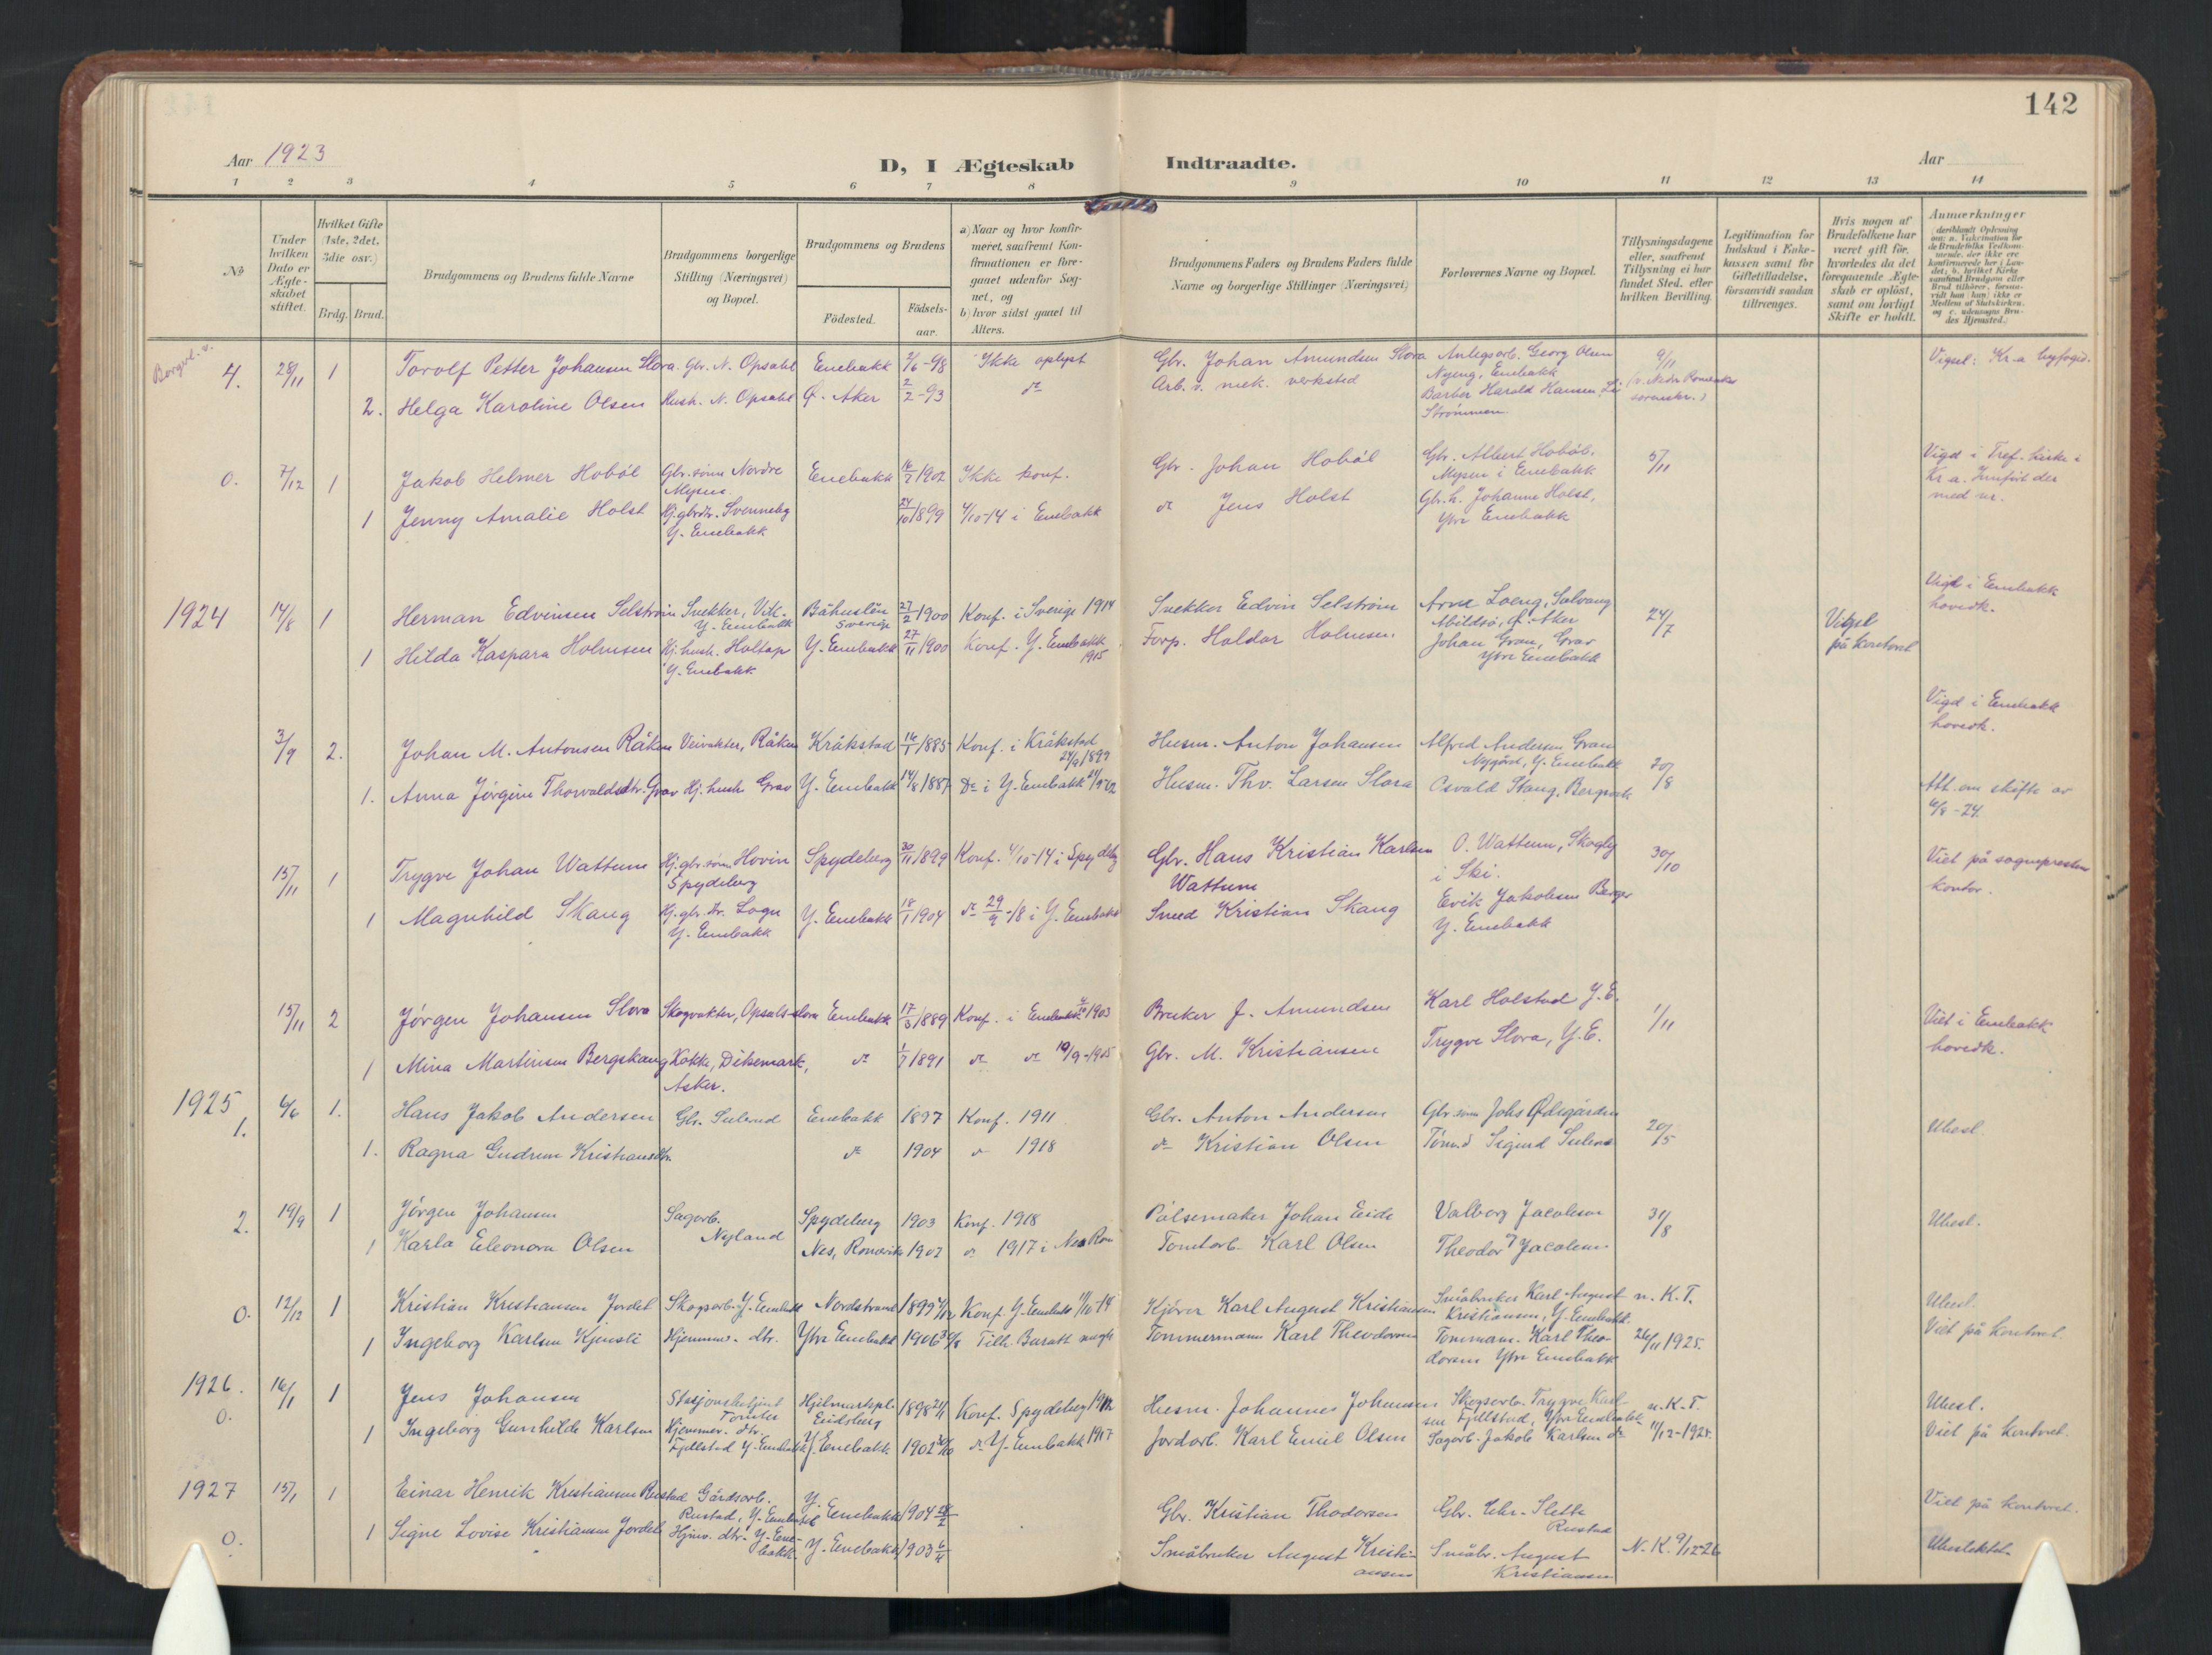 142
Aar 1923
D, I Ægteskab Indtraadte.
Aar
1 2 3 4 5 6 7 8 9 10 11 12 13 14
No
Under hvilken Dato er Ægte-skabet stiftet.
Hvilket Gifte (1ste, 2det, 3die osv.)
Brdg. Brud.
Brudgommens og Brudens fulde Navne
Brudgommens borgerlige Stilling (Næringsvei) og Bopæl.
Brudgommens og Brudens
Födested.
Födsels-aar.
a) Naar og hvor konfir-meret, saafremt Kon-firmationen er fore-gaaet udenfor Sog-net, og
b) hvor sidst gaaet til Alters.
Brudgommens Faders og Brudens Faders fulde Navne og borgerlige Stillinger (Næringsvei)
Forlovernes Navne og Bopæl.
Tillysningsdagene eller, saafremt Tillysning ei har fundet Sted, efter hvilken Bevilling.
Legitimation for Indskud i Enke-kassen samt for Giftetilladelse, forsaavidt saadan tiltrænges.
Hvis nogen af Brudefolkene har været gift för, hvorledes da det foregaaende Ægte-skab er oplöst, samt om lovligt Skifte er holdt.
Anmærkninger
(deriblandt Oplysning om: a. Vakcination for de Brudefolks Vedkom-mende, der ikke ere konfirmerede her i Lan-det; b. hvilket Kirke-samfund Brudgom eller Brud tilhörer, forsaa-vidt han (hun) ikke er Medlem af Statskirken, og c. udensogns Bru-des Hjemsted.)
Borgerl. v.
4. 28/11 1 Torolf Petter Johansen Slora. Gbr. N. Opsahl Enebakk 7/6-98 Ikke oplyst Gbr. Johan Amundsen Slora Anlegsarb. Georg Olsen 9/11 Vigsel: Kr.a byfogd.
Nyeng, Enebakk
2. Helga Karoline Olsen Hush. N. Opsahl Ø. Aker 2/2-93 do Arb. v. mek. verksted Barber Harald Hansen
Strømmen
0. 7/12 1 Jakob Helmer Hobøl Gbr.sønn Nordre Mysen Enebakk 16/7 1902 Ikke konf. Gbr. Johan Hobøl Gbr. Albert Hobøl, Mysen i Enebakk 5/11 Vigd i Tref. kirke i Kr.a. Innført der med nr.
1 Jenny Amalie Holst Hj. gbrdtr. Svenneby Y. Enebakk 24/10 1899 4/10-14 i Enebakk do Jens Holst Gbr. h. Johanne Holst, Ytre Enebakk
1924 14/8 1 Herman Edvinsen Selstrøm Snekker, Vik. Y. Enebakk Båhuslen Sverige 27/2 1900 Konf. i Sverige 1914 Snekker Edvin Selstrøm Arne Loeng, Solvang Abildsø, Ø. Aker 24/7 Vigsel på kontoret Vigd i Enebakk hovedk.
1 Hilda Kaspara Holmsen Hj. hush. Holtop Y. Enebakk Y. Enebakk 27/11 1900 Konf. Y. Enebakk 1915 Forp. Haldor Holmsen Johan Grav, Grav Ytre Enebakk
3/9 2. Johan M. Antonsen Råken Veivokter, Råken Kråkstad 16/1 1885 Konf. i Kråkstad 24/9 1899 Husm. Anton Johansen Alfred Andersen Grav Nygård, Y. Enebakk 20/8 Vigd i Enebakk hovedk.
1. Anna Jørgine Thorvaldsdtr. Grav Hj. hush Grav Y. Enebakk 14/8 1887 Do i Y. Enebakk 21/9 02 Husm. Thv. Larsen Slora Osvald Stang, Att. om skifte av 6/8-24.
15/11 1 Trygve Johan Wattum Hj. gbr. sønn Hovin Spydeberg Spydeberg 30/11 1899 Konf. 4/10-14 i Spydebg Gbr. Hans Kristian Karlsen Wattum O. Wattum, Skogly i Ski. 30/10 Viet på sogneprestens kontor.
1 Magnhild Skaug Hj. gbr. dtr. Sogn Y. Enebakk Y. Enebakk 18/1 1904 do 29/9-18 i Y. Enebakk Smed Kristian Skaug Erik Jakobsen Berger Y. Enebakk
15/11 2 Jørgen Johansen Slora Skogvokter, Opsals-slora Enebakk 17/3 1889 Konf. i Enebakk 1903 Bruker J. Amundsen Karl Holstad Y. E. 1/11 Viet i Enebakk hovedk.
1 Mina Martinsen Bergskaug Kokke, Dikemark, Asker. do 1/7 1891 do do 19/9-1905 Gbr. M. Kristiansen Trygve Slora, Y. E.
1925
1. 6/6 1. Hans Jakob Andersen Gbr. Sulerud Enebakk 1897 Konf. 1911 Gbr. Anton Andersen Gbr. sønn Johs Ødegården 20/5 Ubesl.
1. Ragna Gudrun Kristiansdtr. do 1904 do 1918 do Kristian Olsen Tømd Sigurd Sulerud
2. 19/9 1 Jørgen Johansen Sagarb. Nyland Spydeberg 1903 Konf. 1918 Pølsemaker Johan Eide Valborg Jacobsen 31/8 Ubesl.
1 Karla Eleonora Olsen Nes, Romerike 1902 do 1917 i Nes Rom Tomtarb. Karl Olsen Theodor Jacobsen
0. 12/12 1 Kristian Kristiansen Jordet Skogsarb. Y. Enebakk Nordstrand 1899 Konf. Y. Enebakk 11/10-14 Kjører Karl August Kristiansen Småbruker Karl August Kristiansen, Y. Enebakk n. K. T. Ubesl.
1 Ingeborg Karlsen Kjensli Hjemmev. dtr. Ytre Enebakk 1906 Tilh. Baratt Tømmermann Karl Theodorsen Tømmerm. Karl Theo-dorsen Ytre Enebakk 26/11 1925. Viet på kontoret.
1926.
0. 16/1 1 Jens Johansen Stasjonsbetjent Tomter Hjelmarkspl. Eidsberg 1898 Konf. Spydeberg 1912 Husm. Johannes Johansen Skogsarb. Trygve Karl-sen Fjellstad, Ytre Enebakk n. K. T. Ubesl.
1 Ingeborg Gunhilde Karlsen Hjemmev. dtr Fjellstad Y. Enebakk Y. Enebakk 1902 do Y. Enebakk 1917 Jordarb. Karl Emil Olsen Sagarb. Jakob Karlsen do 11/12-1925. Viet på kontoret.
1927 15/1 1 Einar Henrik Kristiansen Rustad Gårdsarb. Rustad, Y. Enebakk Y. Enebakk 1904 28/2 Gbr. Kristian Thodorsen Gbr. Chr. Slette Rustad Viet på kontoret.
0. 1 Signe Lovise Kristiansen Jordet Hjmv. dtr. Y. Ene-bakk Y. Enebakk 1903 6/11 Småbruker August Kristi-ansen Småbr. August Kristiansen N. K. 9/12-26 Ubeslektet